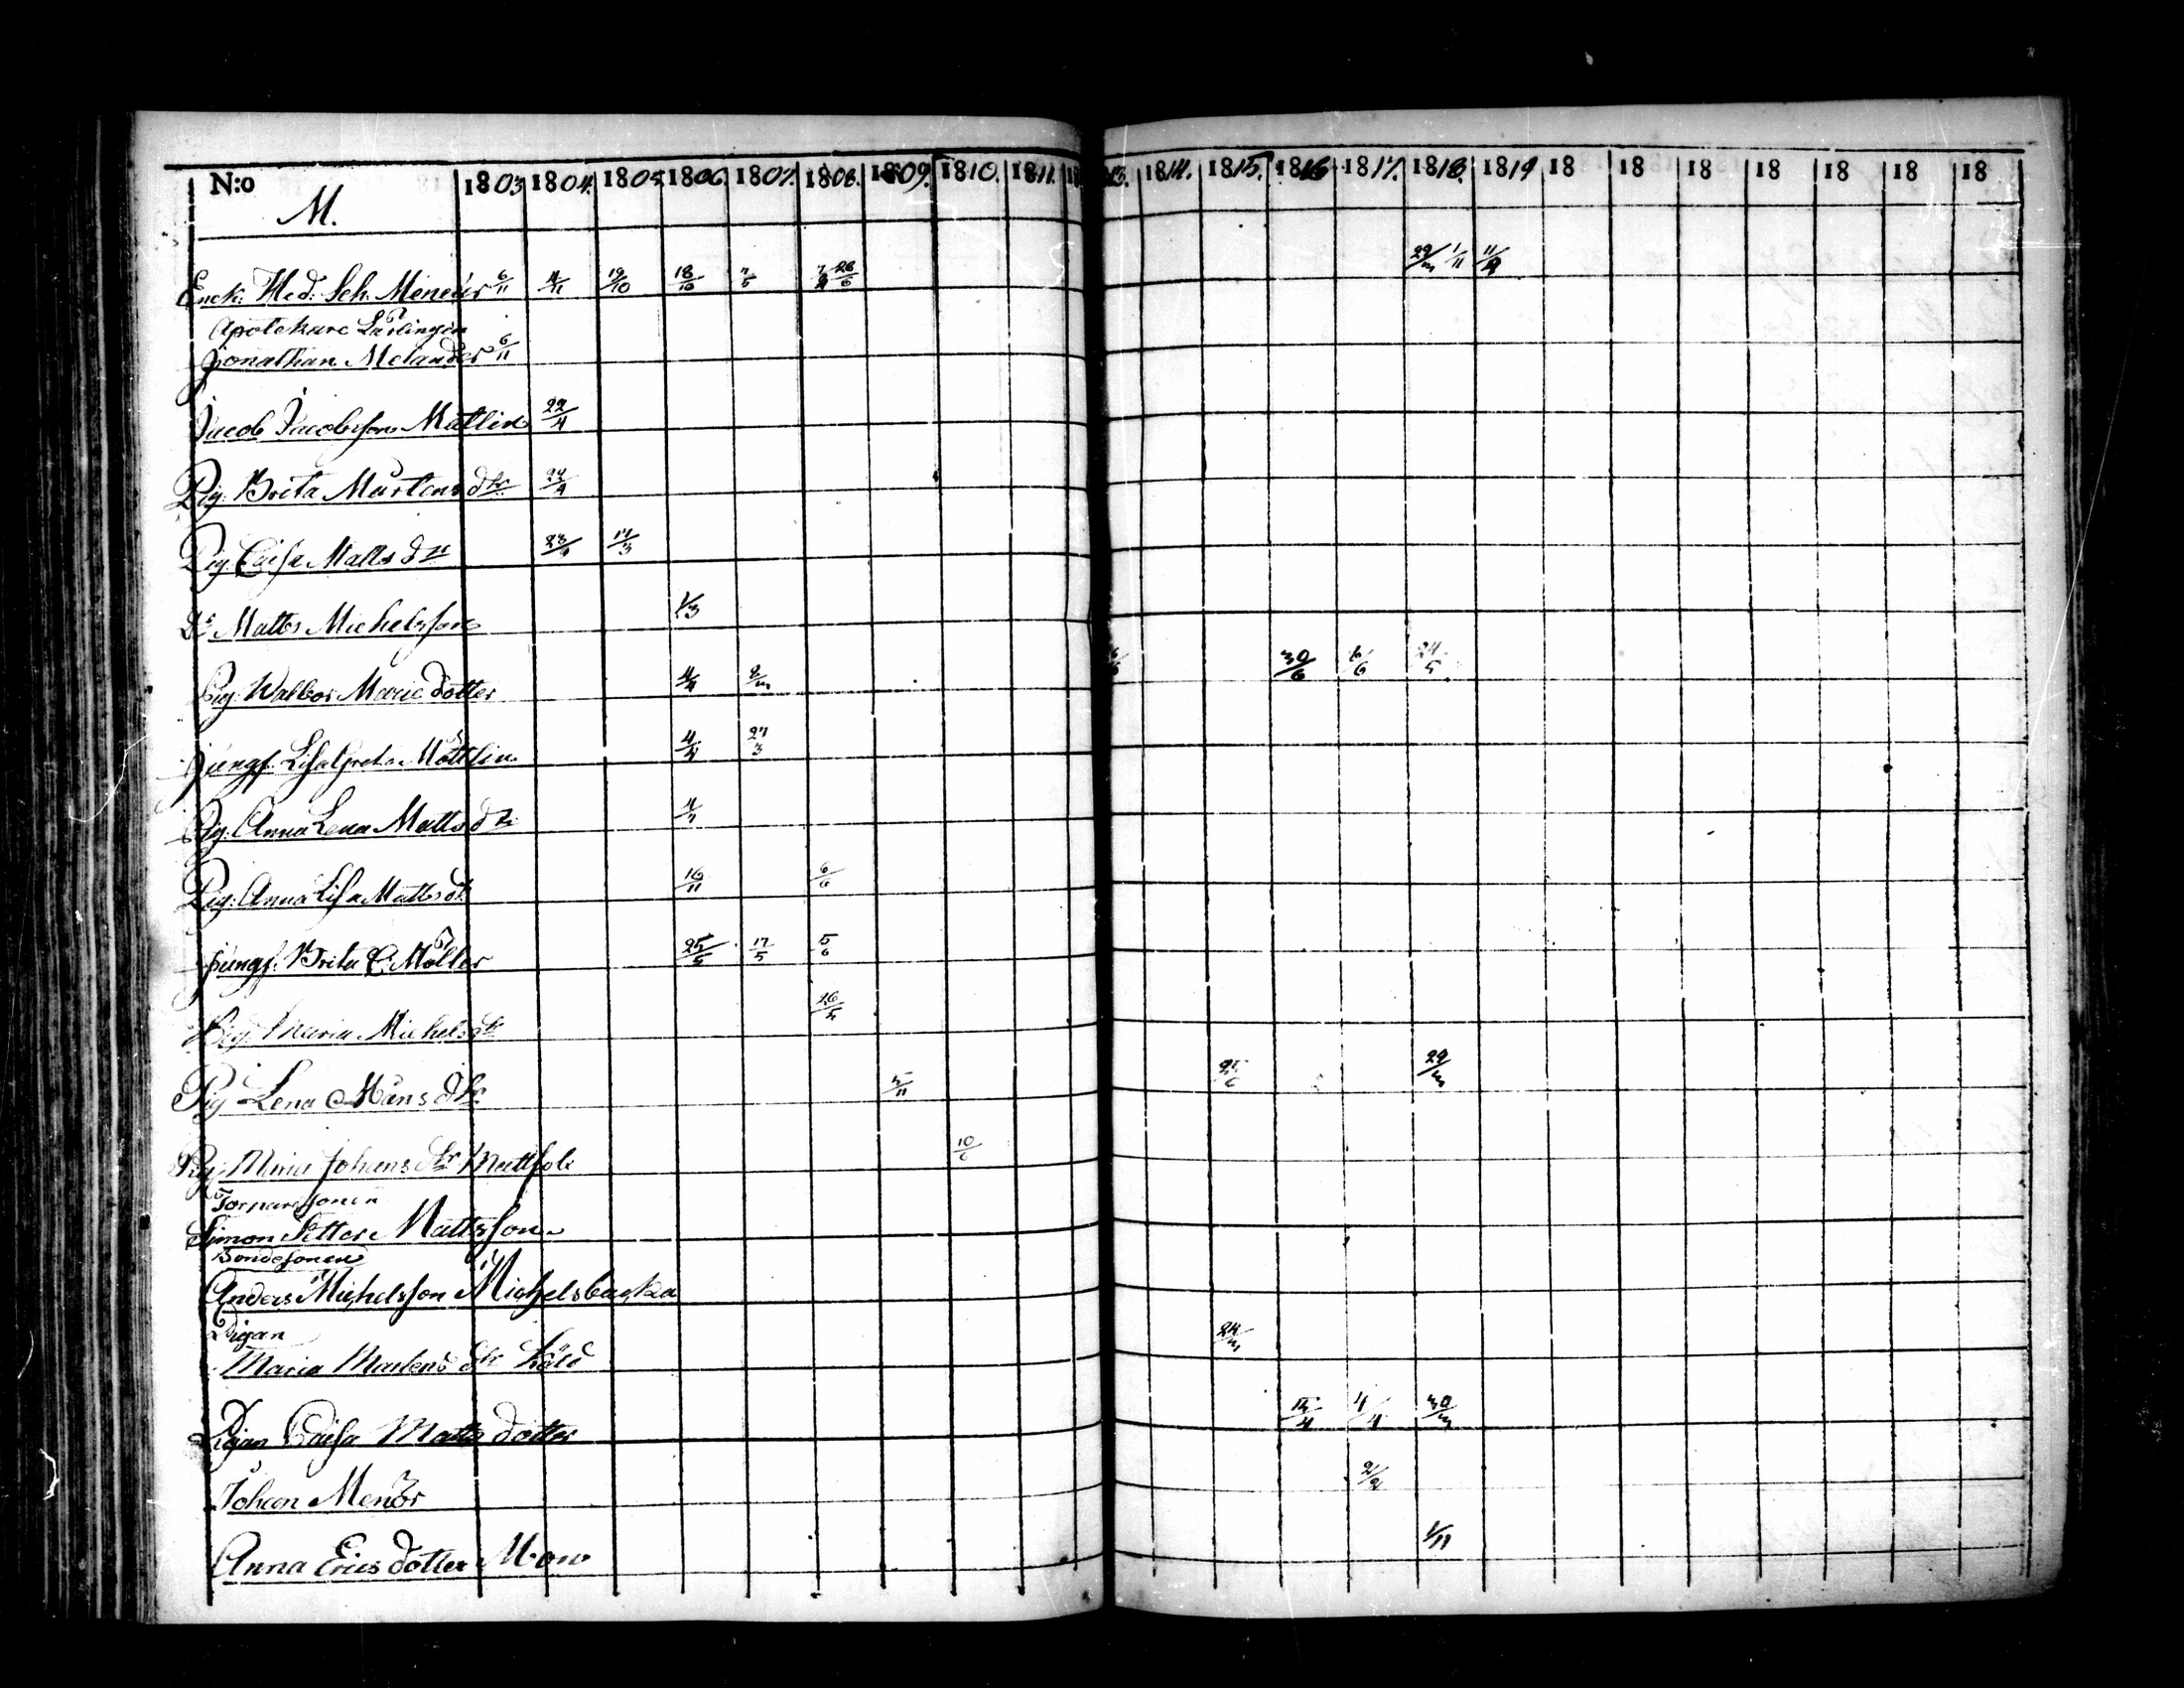 N:o 1803 1804. 1805. 1806. 1807. 1808. 1809. 1810. 1811. 18 13. 1814. 1815. 1816 1817. 1818. 1819 18 18 18 18 18 18 18
M.
Enck: Hed: Sch. Meneür 6/11 4/11 19/10 18/10 7/5 26/6 29/3 1/11 11/4
Apotekare Lärlingen
Jonathan Melander 6/11
Jacob Jacobsson Mattlin 22/4
Pig: Brita Mårtens dtr 24/4
Pig. Caisa Matts dr 23/4 17/3
Dr Matts Michelsson 1/3
Pig. Walbor Marie dotter 4/4 2/3 30/6 6/6 24/5
Jungf. Lisa Greta Mattlin 4/4 27/3
Pig: Anna Lena Matts dr 4/4
Pig: Anna Lisa Matts dr 16/11 6/6
Jungf: Brita C. Möller 25/5 17/5 5/6
Pig: Maria Michels dr 26/5
Pig Lena Måns dtr 5/11 25/6 29/3
Pig: Maria Johans dtr Mattsola 10/6
Torparesonen
Simon Petter Mattsson
Bondesonen
Anders Michelsson Michelsbacka
Pigan
Maria Mårtens dtr Kald 24/3
Pigan Caisa Matts dotter 15/4 4/4 30/3
Johan Menör 2/2
Anna Erics dotter Mow 1/11